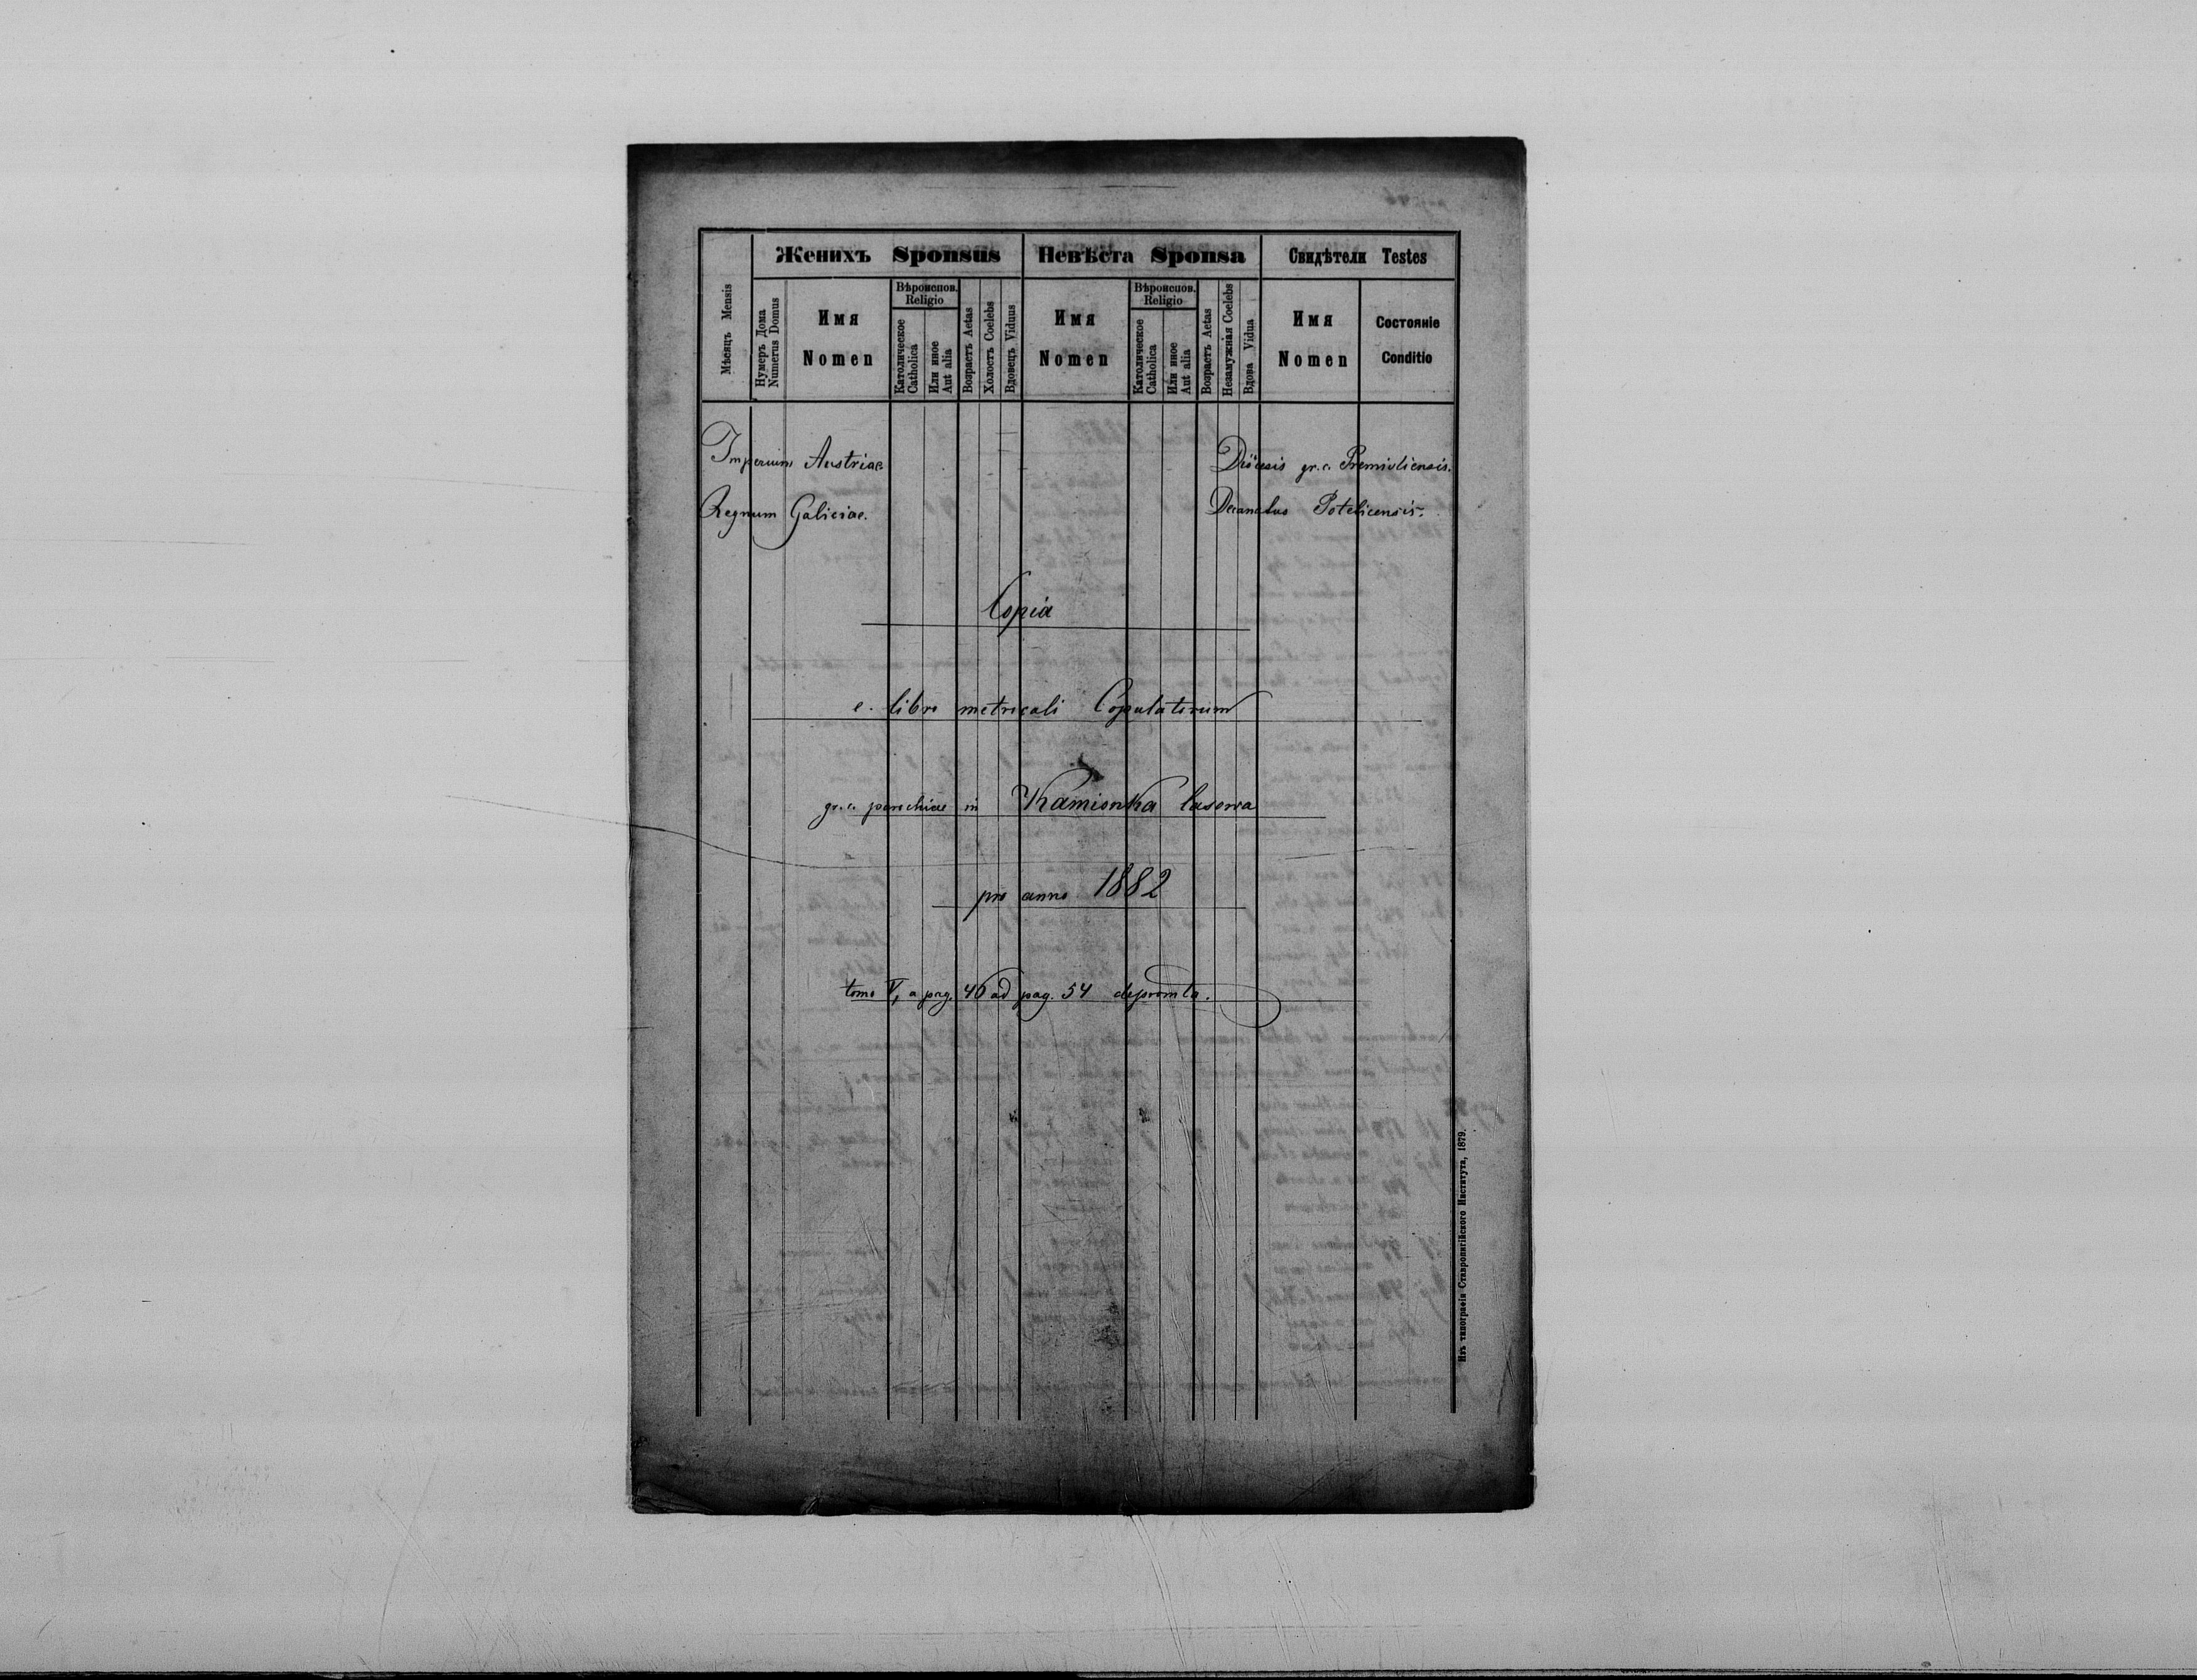 Женихъ Sponsus
Невѣста Sponsa
Свидѣтели Testes
Мѣсяцъ Mensis
Нумеръ Дома
Numerus Domus
Имя
Nomen
Вѣроиспов.
Religio
Католическое
Catholica
Или иное
Aut alia
Возрастъ Aetas
Холостъ Coelebs
Вдовецъ Viduus
Имя
Nomen
Вѣроиспов.
Religio
Католическое
Catholica
Или иное
Aut alia
Возрастъ Aetas
Незамужная Coelebs
Вдова Vidua
Имя
Nomen
Состояніе
Conditio
Imperium Austriae
Diöcesis gr. c. Premisliensis.
Regnum Galiciae.
Decanatus Potelicensis.
Copia
e libro metricali Copulatorum
gr. c. parochiae in Kamionka lasowa
pro anno 1882
tomo V, a pag. 46 ad pag. 54 depromta.
Изъ типографіи Ставропигійского Института, 1879.